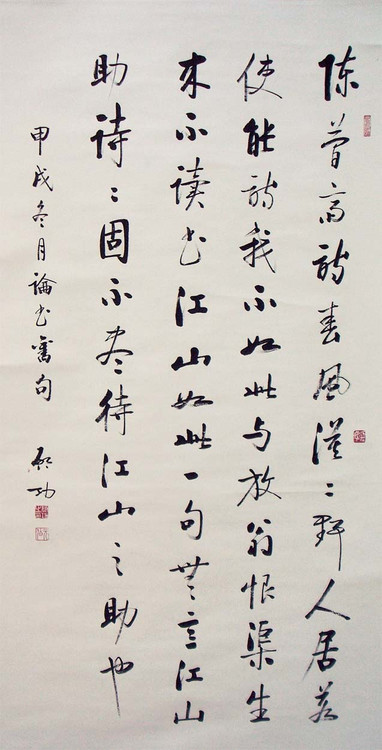 陈简斋诗春風漠々野人居若
使能诗我不如此与放翁恨渠生
来不读书江山如此一句無言江山
助诗々固不尽待江山之助也
甲戌冬月論书舊句 启功